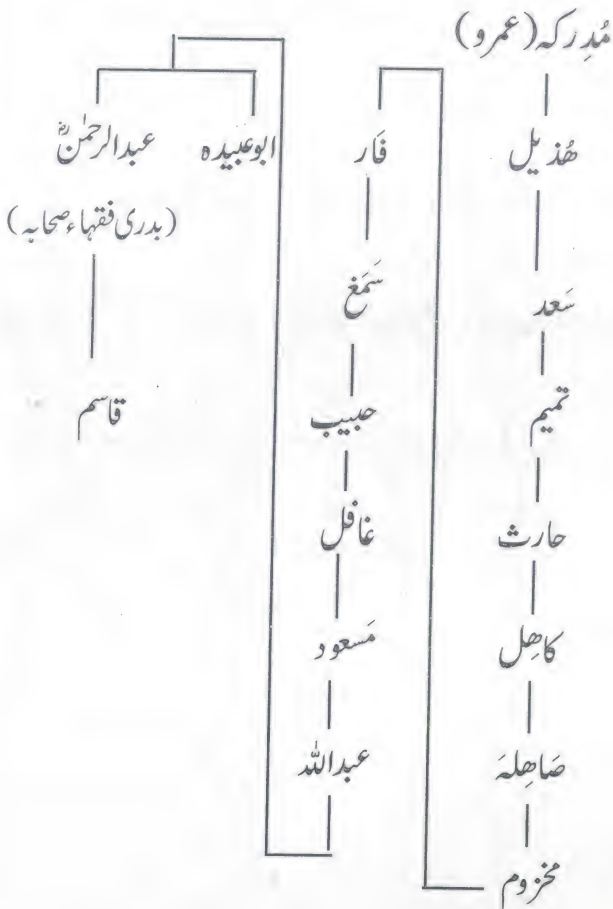 مُدرکہ (عمرو)
ھُذیل
سَعد
تمیم
حارث
کاھِل
صَاھِلہَ
مخزوم
فَار
سَمَغ
حبیب
غافل
مَسعود
عبداللہ
ابوعبیدہ
عبدالرحمٰنؓ
(بدری فقہاء صحابہ)
قاسم